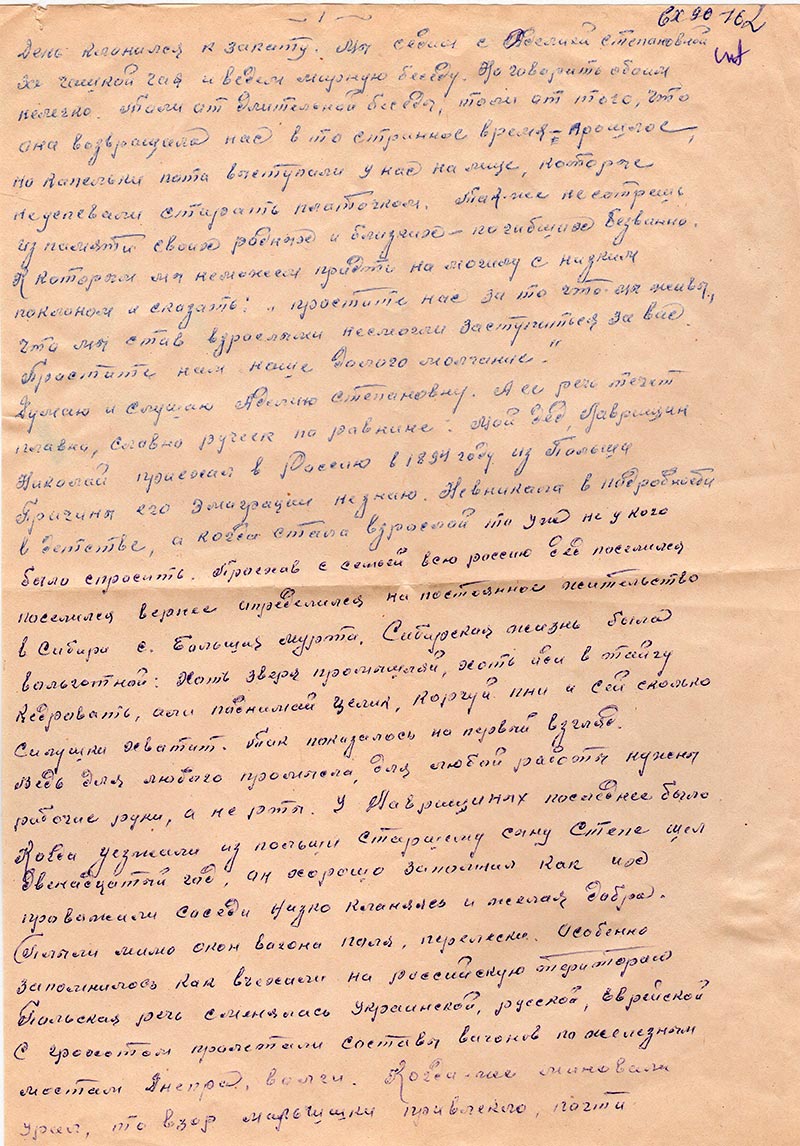 — 1 ~
Вх 90 162
День клонился к закату. Мы седим с Аделией Степановной
за чашкой чая и ведем мирную беседу. Но говорить обоим
нелегко. Толи от длительной беседы, толи от того, что
она возвращала нас в то странное время – прошлое,
но капельки пота выступали у нас на лице, которые
неуспевали стирать платочком. Так-же несотрешь
из памяти своих родных и близких – погибших безвинно.
К которым мы неможем придти на могилу с низким
поклоном и сказать: „простите нас за то что-мы живы,
что мы став взрослыми несмогли заступиться за вас.
Простите нам наше долгое молчание."
Думаю и слушаю Аделию Степановну. А ее речь течет
плавно, словно ручеек по равнине: Мой дед, Лаврищин
Николай приехал в Россию в 1894 году из Польши
Причины его эмиграции незнаю. Невникала в подробности
в детстве, а когда стала взрослой то уже не у кого
было спросить. Проехав с семьей всю россию дед поселился
поселился вернее определился на постоянное жительство
в Сибири с. Большая мурта. Сибирская жизнь была
вольготной: Хоть зверя промышляй, хоть иди в тайгу
кедровать, али поднимай целик, корчуй пни и сей сколько
силушки хватит. Так показалось на первый взгляд.
Ведь для любого промысла, для любой работы нужны
рабочие руки, а не рты. У Лаврищиных последнее было.
Когда уезжали из польши старшему сыну Степе шел
двенадцатый год, он хорошо запомнил как их
провожали соседи низко кланяясь и желая добра.
Плыли мимо окон вагона поля, перелески. Особенно
запомнилось как въезжали на российскую територию
Польская речь сменялась Украинской, русской, Еврейской
С грохотом пролетали составы вагонов по железным
мостам Днепра, волги. Когда-же миновали
Урал, то взор мальчишки привлекло, почти